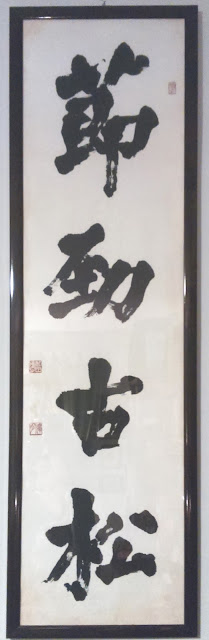 節勁古松